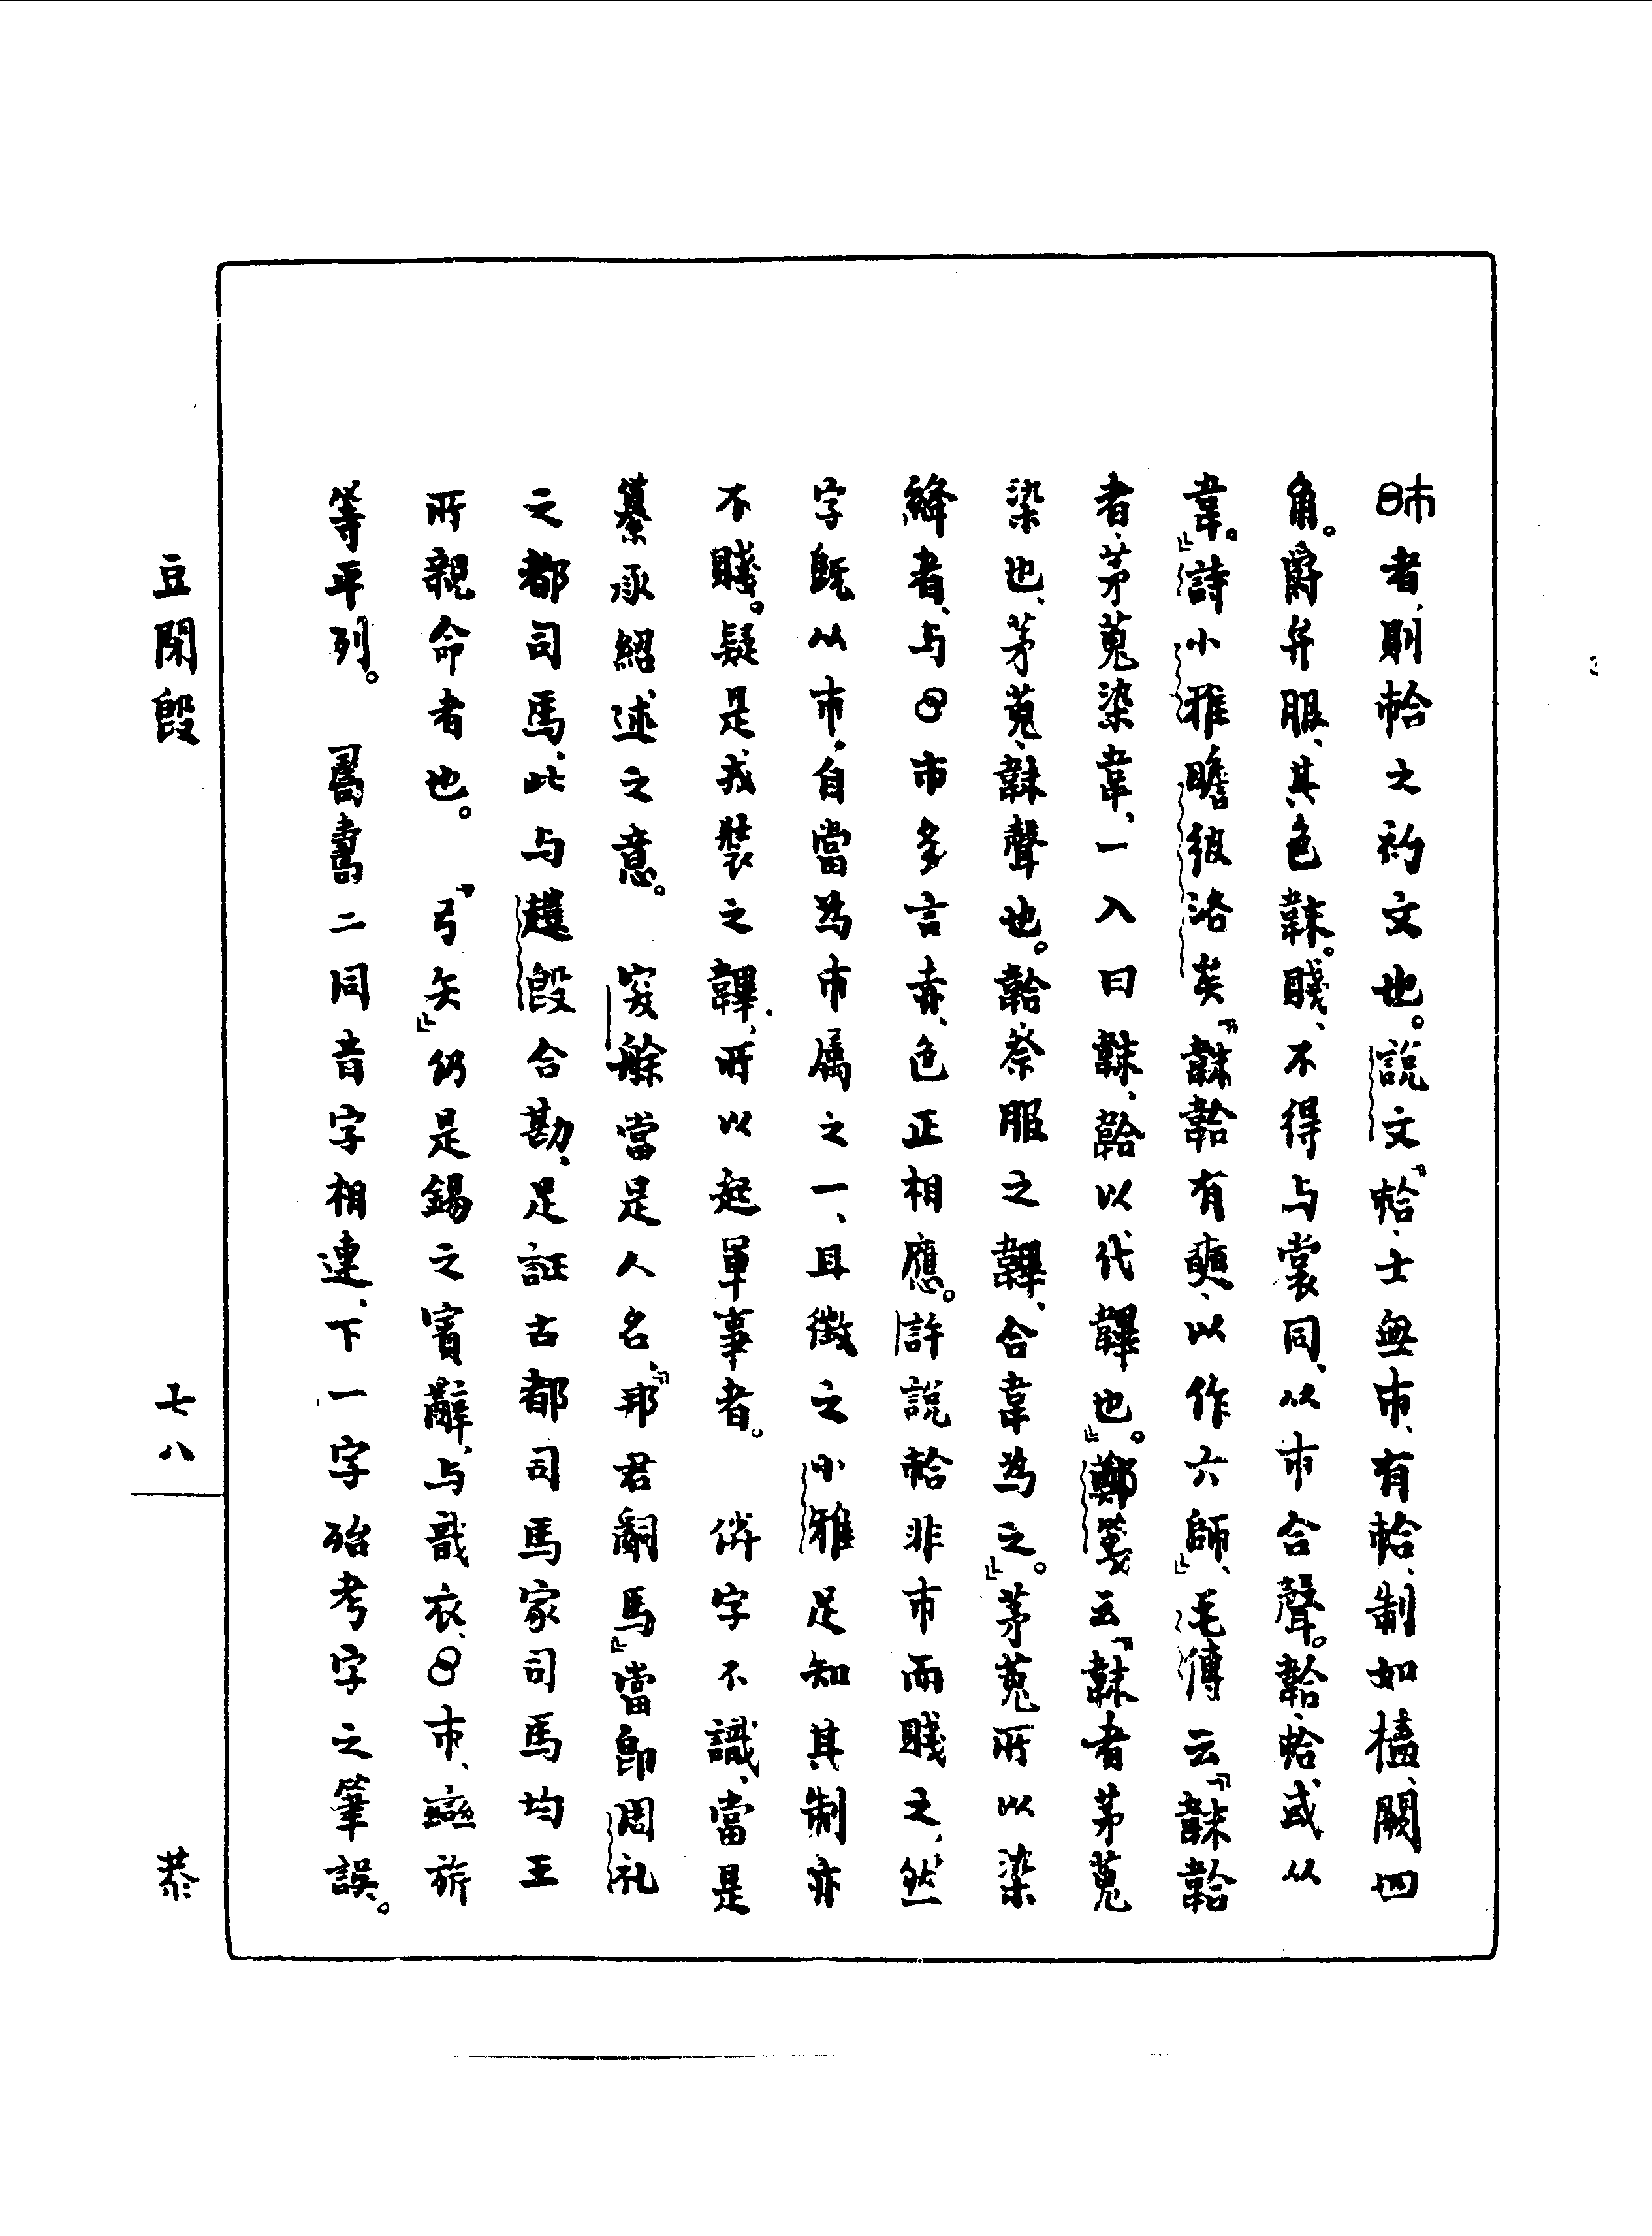 市者、則帢之初文也。說文『帢、士無市、有帢、制如榼、闕四
角。爵弁服、其色韎。賤、不得与裳同、从市合聲。韐、帢或从
韋。』詩小雅瞻彼洛矣『韎韐有奭、以作六師』、毛傳云『韎韐
者、茅蒐染韋、一入曰韎、韐以代韠也。』鄭箋云『韎者茅蒐
染也、茅蒐、韎聲也。韐祭服之韠、合韋為之。』茅蒐所以染
絳者、与市多言赤、色正相應。許說帢非市而賤之、然
字既从市、自當為市属之一、且徵之小雅足知其制亦
不賤。疑是戎裝之韠、所以起軍事者。　字不識、當是
纂承紹述之意。　當是人名、『邦君嗣馬』當即周礼
之都司馬、此与趞𣪘合勘、足証古都司馬家司馬均王
所親命者也。　『弓矢』仍是錫之賓辭、与戠衣、市、䜌旂
等平列。　二同音字相連、下一字殆考字之筆誤。
豆閉𣪘　七八　㳟